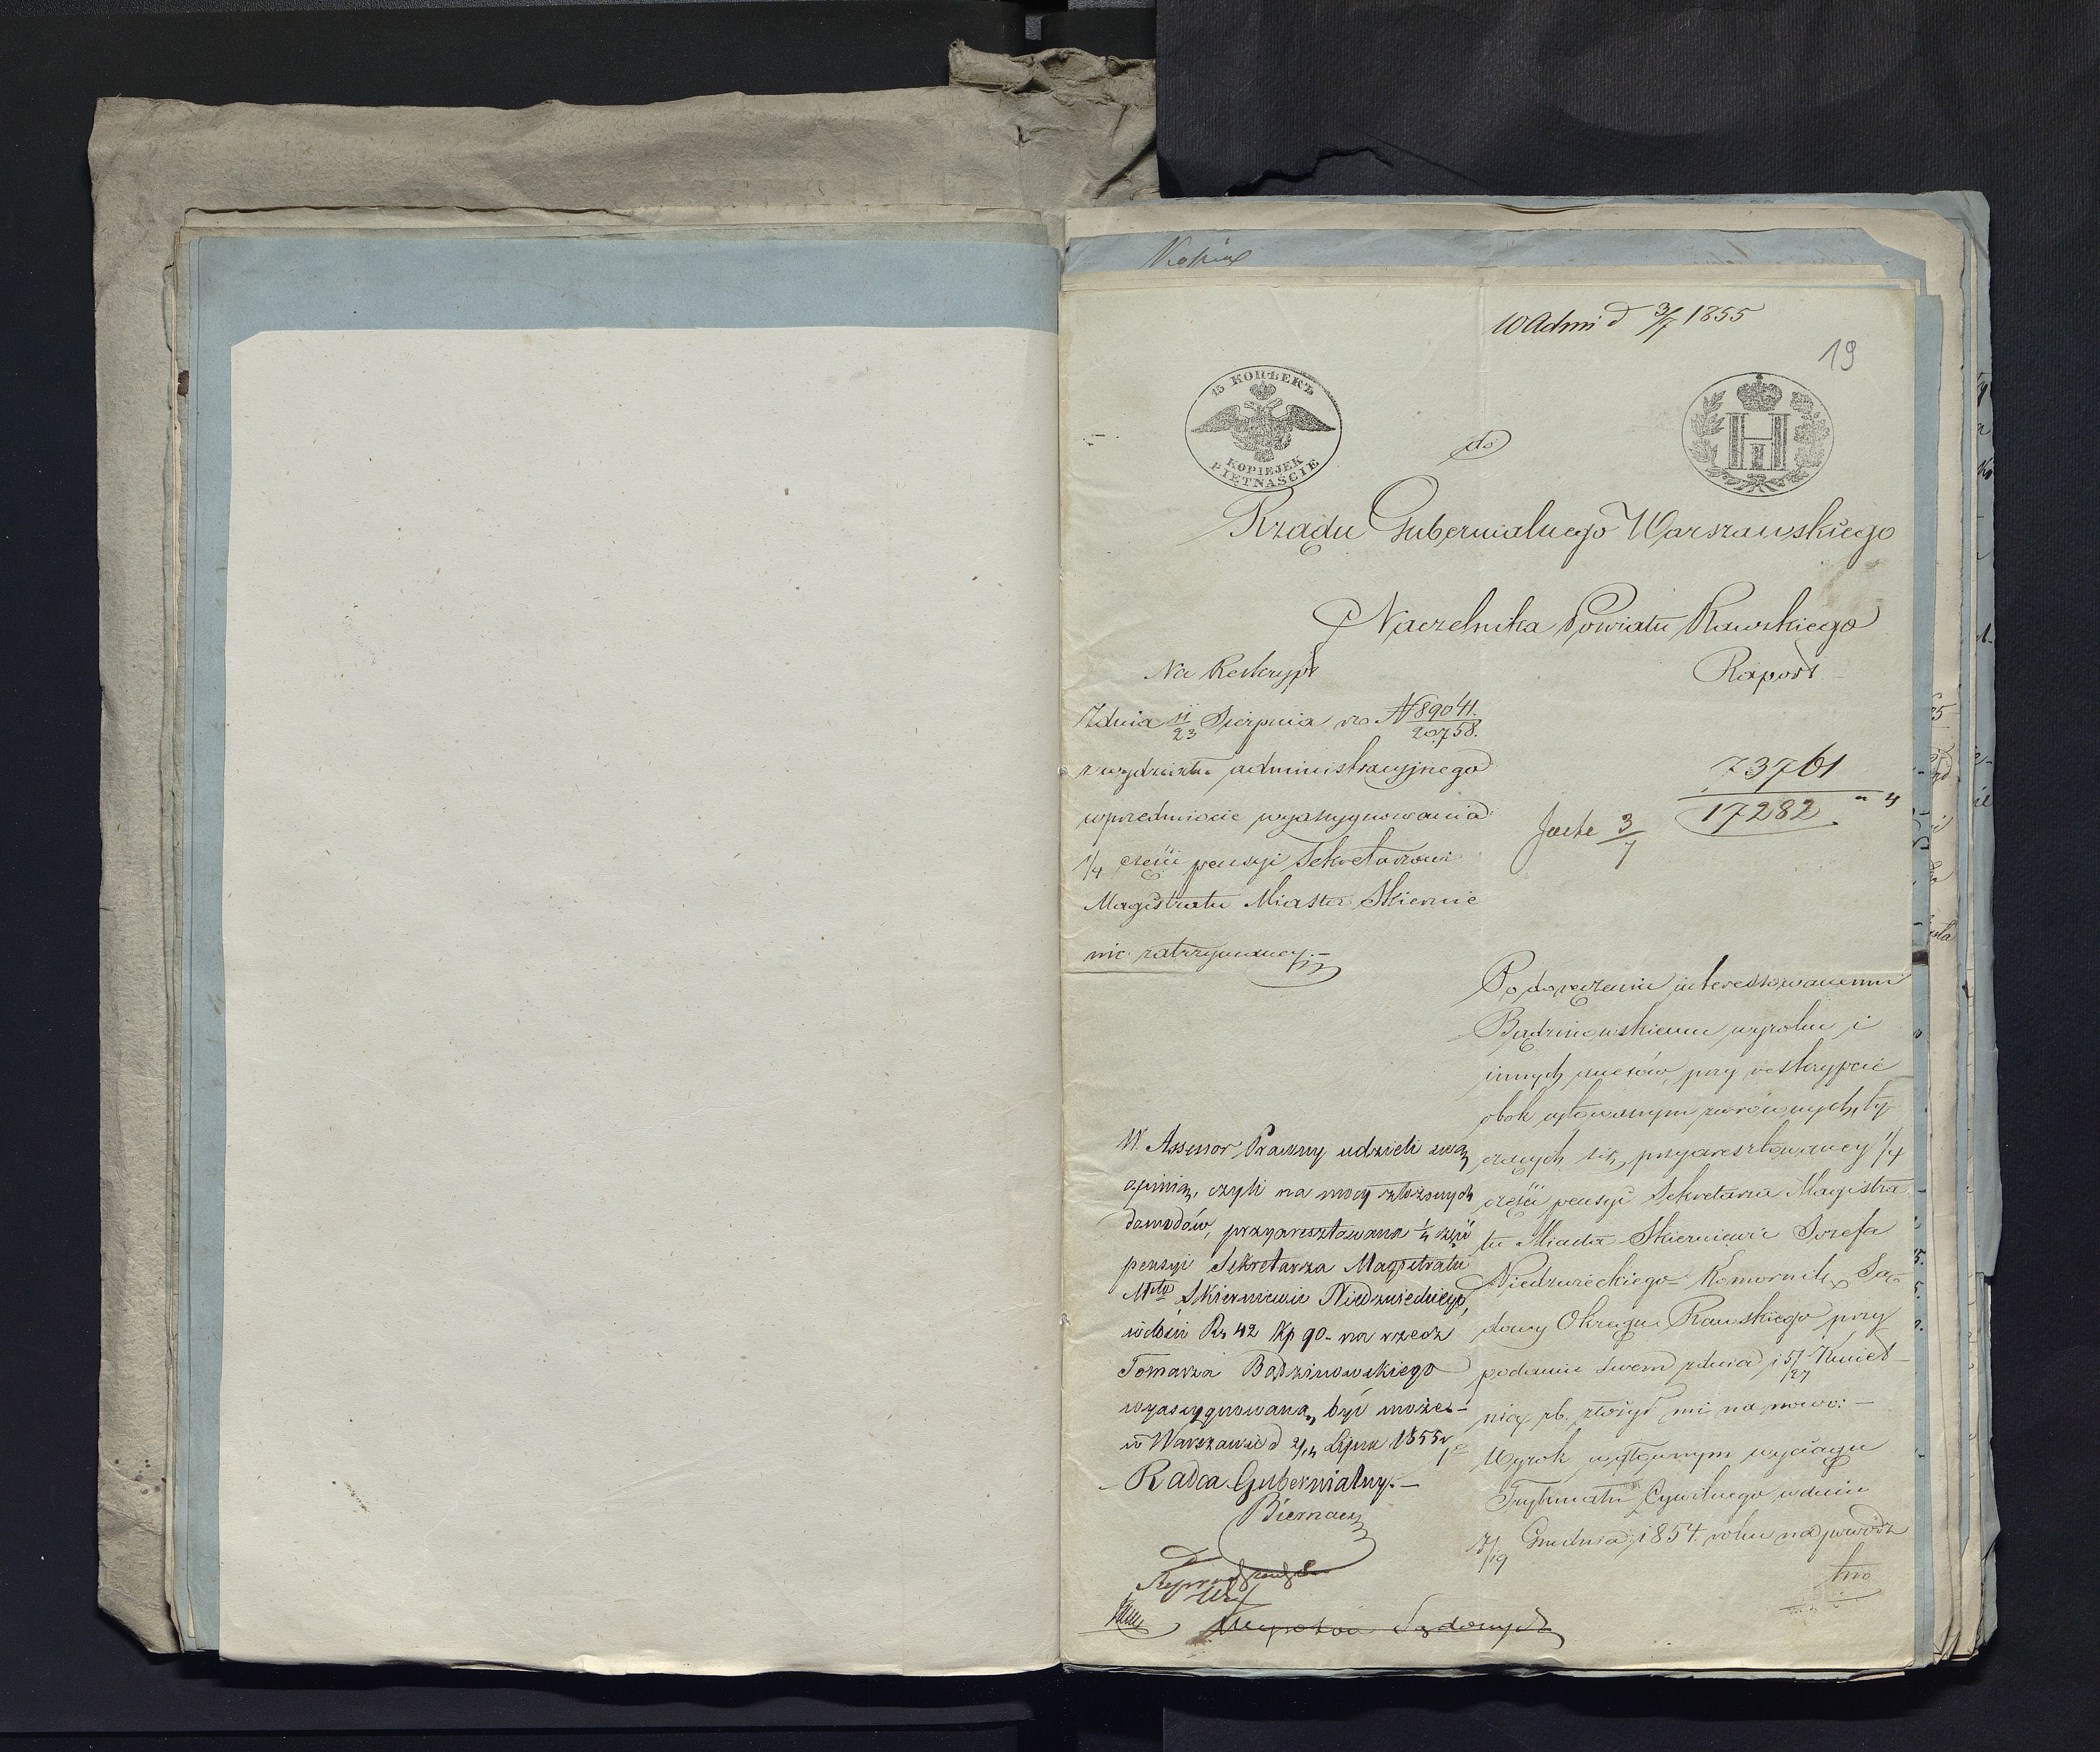 Kopia
W Admi d 3/7 1855
19
15 КОПѢЕКЪ
KOPIEJEK
PIĘTNAŚCIE
H I
do
Rządu Gubernialnego Warszawskiego
Naczelnika Powiatu Rawskiego
Raport
Na Reskrypt
Z dnia 11/23 Sierpnia ro N 89041/20758.
z wydziału administracyjnego
w przedmiocie wyasygnowania
1/4 części pensyi Sekretarzowi
Magistratu Miasta Skiernie
wic zatrzymanej.-
73761
17282
3/7
Po doręczeniu interessowanemu
Bądzinowskiemu wyroku i
innych anexów, przy reskrypcie
obok cytowanym zwróconych, ty
czących się przyaresztowanej 1/4
części pensyi Sekretarza Magistra
tu Miasta Skierniewic Józefa
Niedzwieckiego Komornik Są
dowy Okręgu Rawskiego przy
podaniu swem z dnia 15/27 Kwiet
nia rb. złożył mi na nowo:-
Wyrok w głównym wyciągu
Trybunału Cywilnego w dniu
7/19 Grudnia 1854 roku na powódz
two
W. Assessor Prawny udzieli swą
opinią, czyli na mocy złożonych
dowodów, przyaresztowana 1/4 część
pensyi Sekretarza Magistratu
Mta Skierniewic Niedzwieckiego,
w ilości Rs 42 kp 90- na rzecz
Tomasza Bądzinowskiego
wyasygnowaną, być może.-
w Warszawie d 2/14 Lipca 1855 r
Radca Gubernialny.-
Biernacki
Sądowych